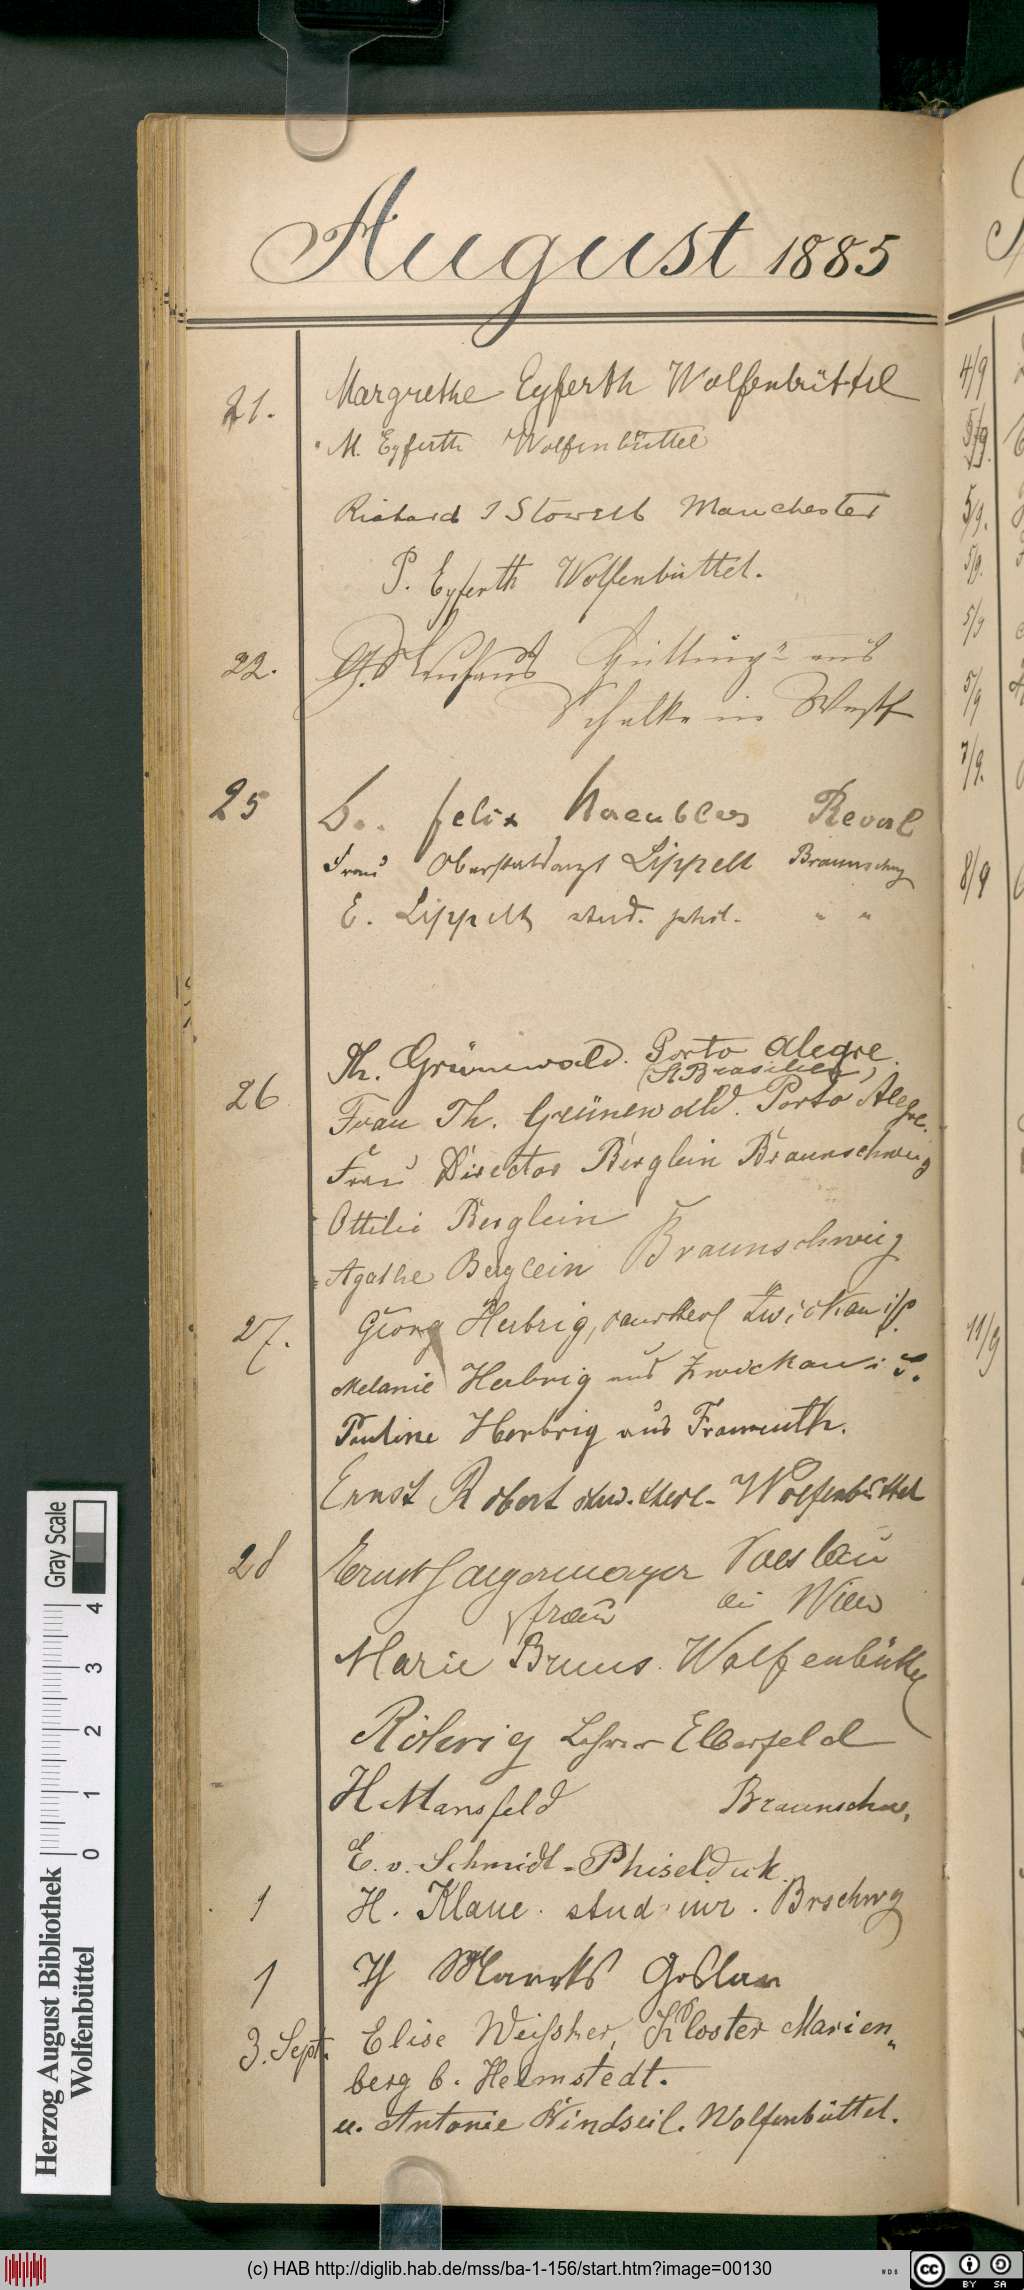 August 1885
21. Margrethe Eyferth Wolfenbüttel
M. Eyferth Wolfenbüttel
Richard J Stowell Manchester
P. Eyferth Wolfenbüttel.
22. aus
Schalke in Westf
25 Dr. Felix Reval
Frau Oberstabsarzt Lippelt Braunschwg
E. Lippelt stud. phil. " "
26 Th. Grünewald. Porto Alegre.
(S. Brasilien)
Frau Th. Grünewald. Porto Alegre.
Frau Director Berglein Braunschweig
Ottilie Berglein
Agathe Berglein Braunschweig
27. Georg Herbrig, Zwickau i/S.
Melanie Herbrig aus Zwickau i S.
Pauline Herbrig aus
Ernst Robert stud. theol. Wolfenbüttel
28 Ernst Jaegermayer Voeslau
bei Wien
Frau
Marie Bruns. Wolfenbüttel
Röhrig Lehrer Elberfeld
H Mansfeld Braunschw.
E. v. Schmidt-Phiseldeck.
1 H. Klaue. stud. iur. Brschwg
1 Goslar
3. Sept. Elise Kloster Marien„
berg b. Helmstedt.
u. Antonie Windseil. Wolfenbüttel.
4/9
5/9.
5/9.
5/9.
5/9
5/9
7/9.
8/9
11/9
Herzog August Bibliothek
Wolfenbüttel
Gray Scale
0 1 2 3 4
(c) HAB http://diglib.hab.de/mss/ba-1-156/start.htm?image=00130
cc BY SA